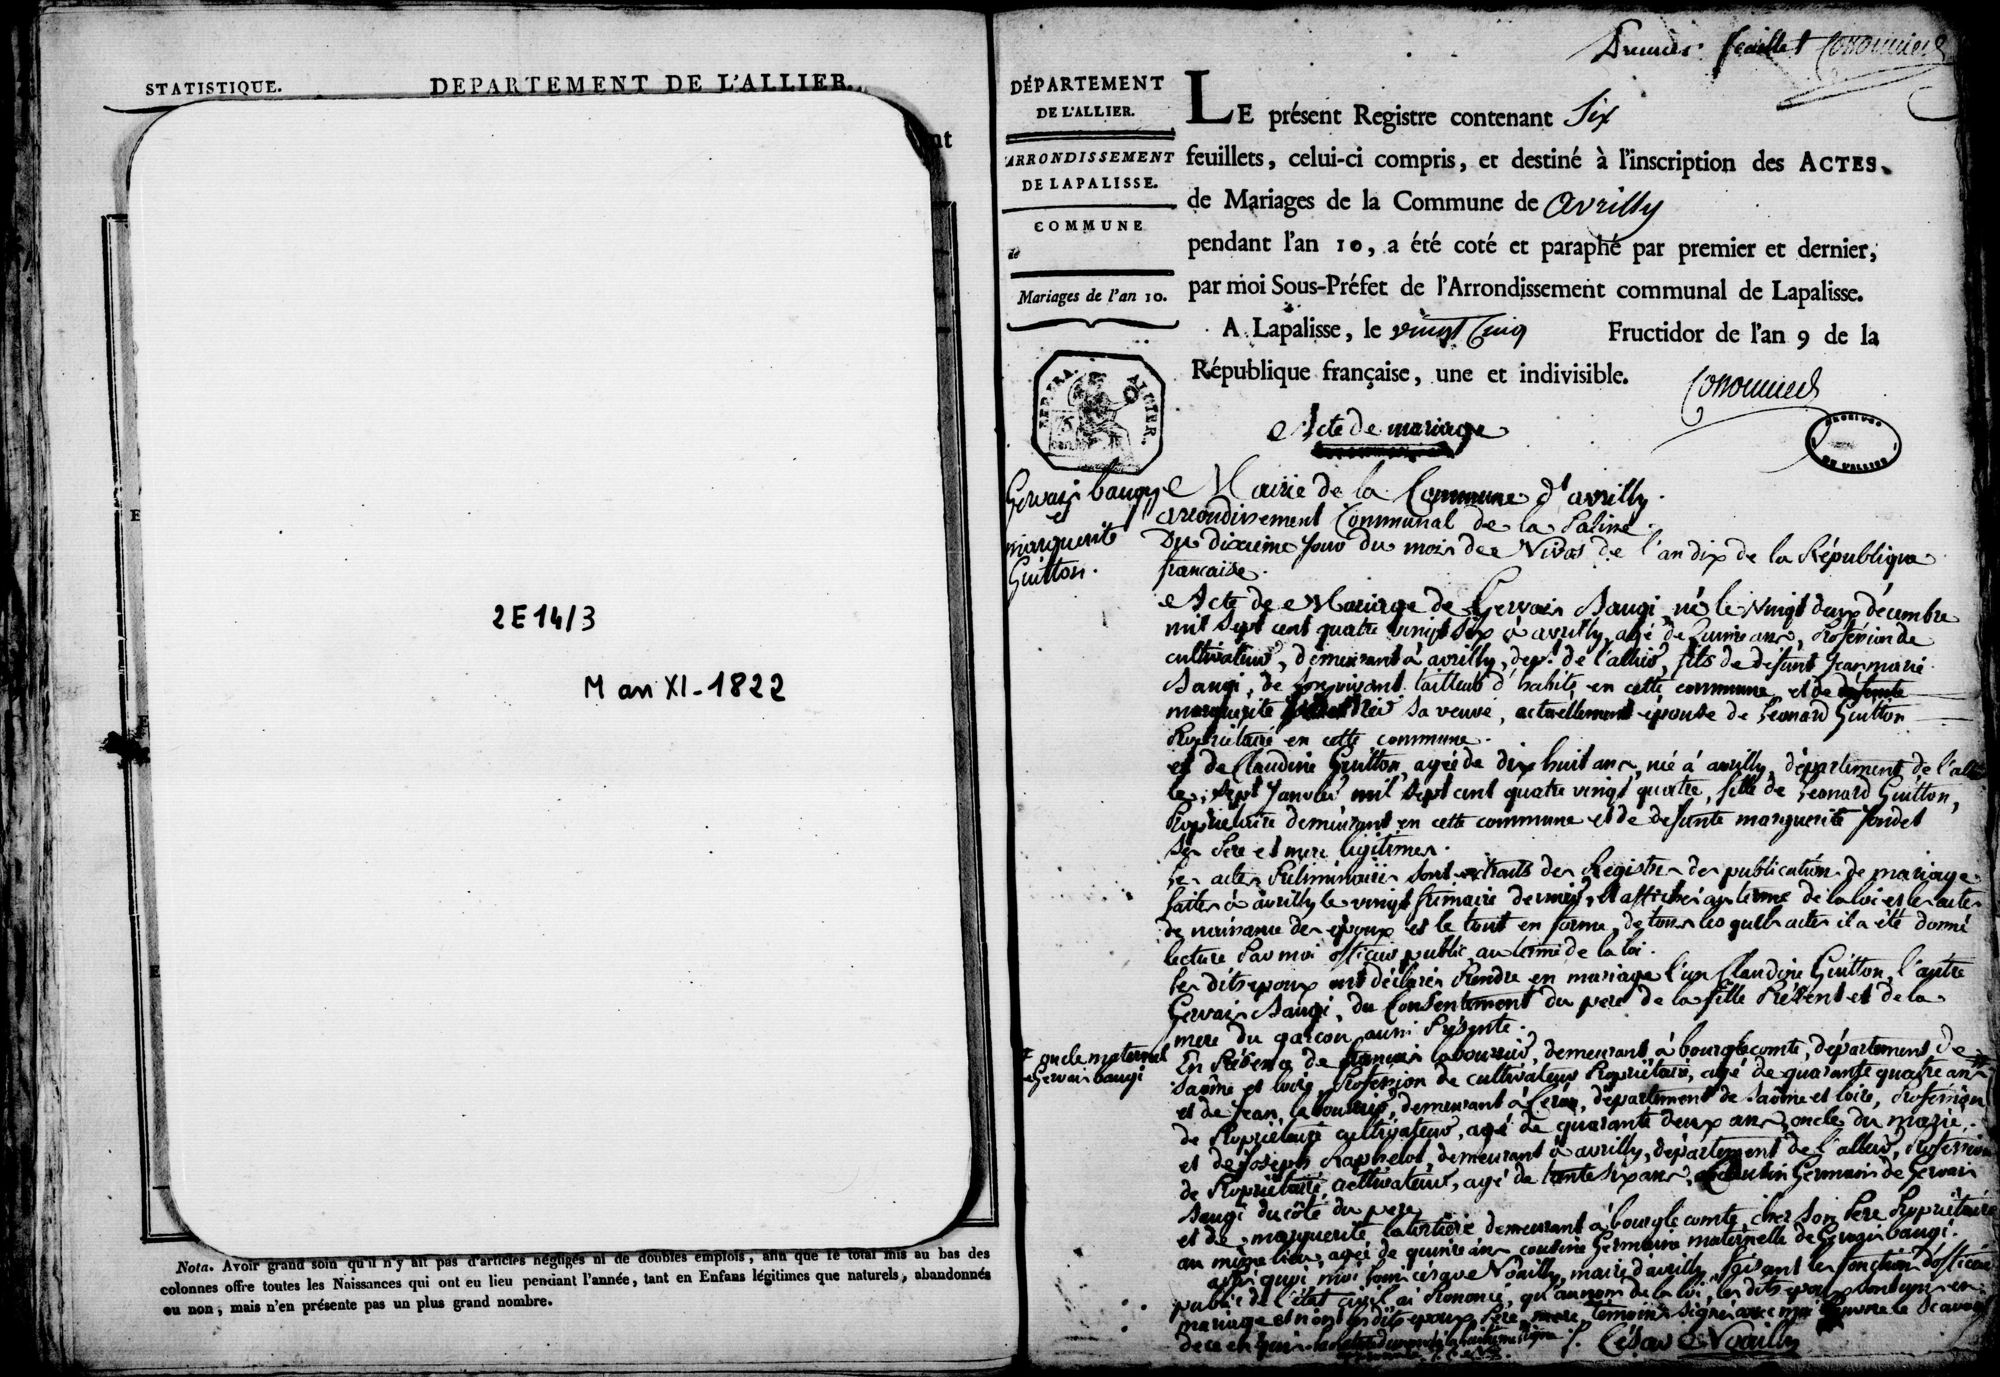 STATISTIQUE. DEPARTEMENT DE L'ALLIER.
nt
E
2E14/3
M an XI-1822
E
E
Nota. Avoir grand soin qu'il n'y ait pas d'articles négligés ni de doubles emplois, afin que le total mis au bas des
colonnes offre toutes les Naissances qui ont eu lieu pendant l'année, tant en Enfans légitimes que naturels, abandonnés
ou non, mais n'en présente pas un plus grand nombre.
feuillet
DÉPARTEMENT
DE L'ALLIER.
ARRONDISSEMENT
DE LAPALISSE.
COMMUNE
de
Mariages de l'an 10.
LE présent Registre contenant Six
feuillets, celui-ci compris, et destiné à l'inscription des ACTES
de Mariages de la Commune de avrilly
pendant l'an 10, a été coté et paraphé par premier et dernier,
par moi Sous-Préfet de l'Arrondissement communal de Lapalisse.
A Lapalisse, le vingt Cinq Fructidor de l'an 9 de la
République française, une et indivisible.
Acte de mariage
Gervais baugy
et
marguerite
Guitton.
Mairie de la Commune d'avrilly.
arrondissement Communal de la Palisse.
Du dixieme Jour du mois de Nivos de l'an dix de la République
francaise.
Acte de Mariage de Gervais Baugi, né le vingt deux décembre
mil sept cent quatre vingt six à avrilly, agé de Quinze ans, Profession de
cultivateur, demeurant à avrilly, dept. de l'allier, fils de defunt Jean marie
Baugi, de son vivant tailleur d'habits en cette commune, et de
marguerite sa veuve, actuellement épouse de Léonard Guitton
Propriétaire en cette commune.
et de Claudine Guitton, agée de dix huit ans, née à avrilly, département de l'allier
le sept Janvier mil sept cent quatre vingt quatre, fille de Léonard Guitton,
Propriétaire demeurant en cette commune et de defunte marguerite
ses Père et mere legitimes.
les actes Préliminaires sont extraits des Registres des publications de mariage
faites à avrilly le vingt frimaire dernier, et affichés au terme de la loi et les actes
de naissance des époux et le tout en forme, de tous les quels actes il a été donné
lecture Par moi officier public, au terme de la loi.
les dits époux ont déclaré Prendre en mariage l'un Claudine Guitton, l'autre
Gervais Baugi, du Consentement du pere de la fille Présent et de la
mere du garçon aussi Présente.
oncle maternel
de Gervais baugi
En Présence de demeurant à bourg le comte, département de
Saône et loire, Profession de cultivateur Propriétaire, agé de quarante quatre ans
et de Jean demeurant à Céron, département de Saône et loire, Profession
de Propriétaire cultivateur, agé de quarante deux ans, oncle du marié.
et de Joseph demeurant à avrilly, département de l'allier, Profession
de Propriétaire cultivateur, agé de trente six ans, Cousin Germain de Gervais
Baugi du côté du pere
et de marguerite demeurant à bourg le comte, chez son Pere Propriétaire
au même lieu, agée de quinze ans cousine Germaine maternelle de Gervais baugi.
après quoi, moi Noailly, maire d'avrilly, faisant les fonctions d'officier
public de l'état civil ai Prononcé, qu'au nom de la loi, les dits époux sont unis en
mariage et n'ont les dits époux Père, mere, temoins signé avec moi
de ce enquis
César Noailly